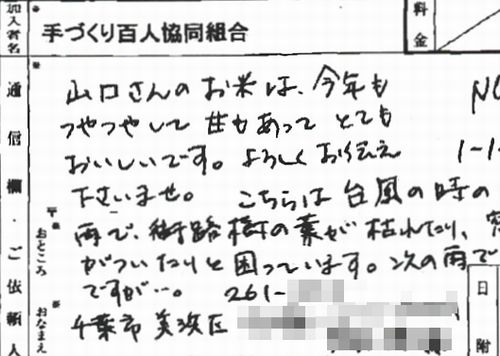 加入者名
手づくり百人協同組合
料金
通信欄・ご依頼人
山口さんのお米は、今年も
つやつやして甘もあってとても
おいしいです。よろしくお伝え
下さいませ。 こちらは台風の時の
雨で、街路樹の葉が枯れたり、
がついたりと困っています。次の雨で
ですが…。 261-
千葉市美浜区
おところ
おなまえ
日附
1-1-